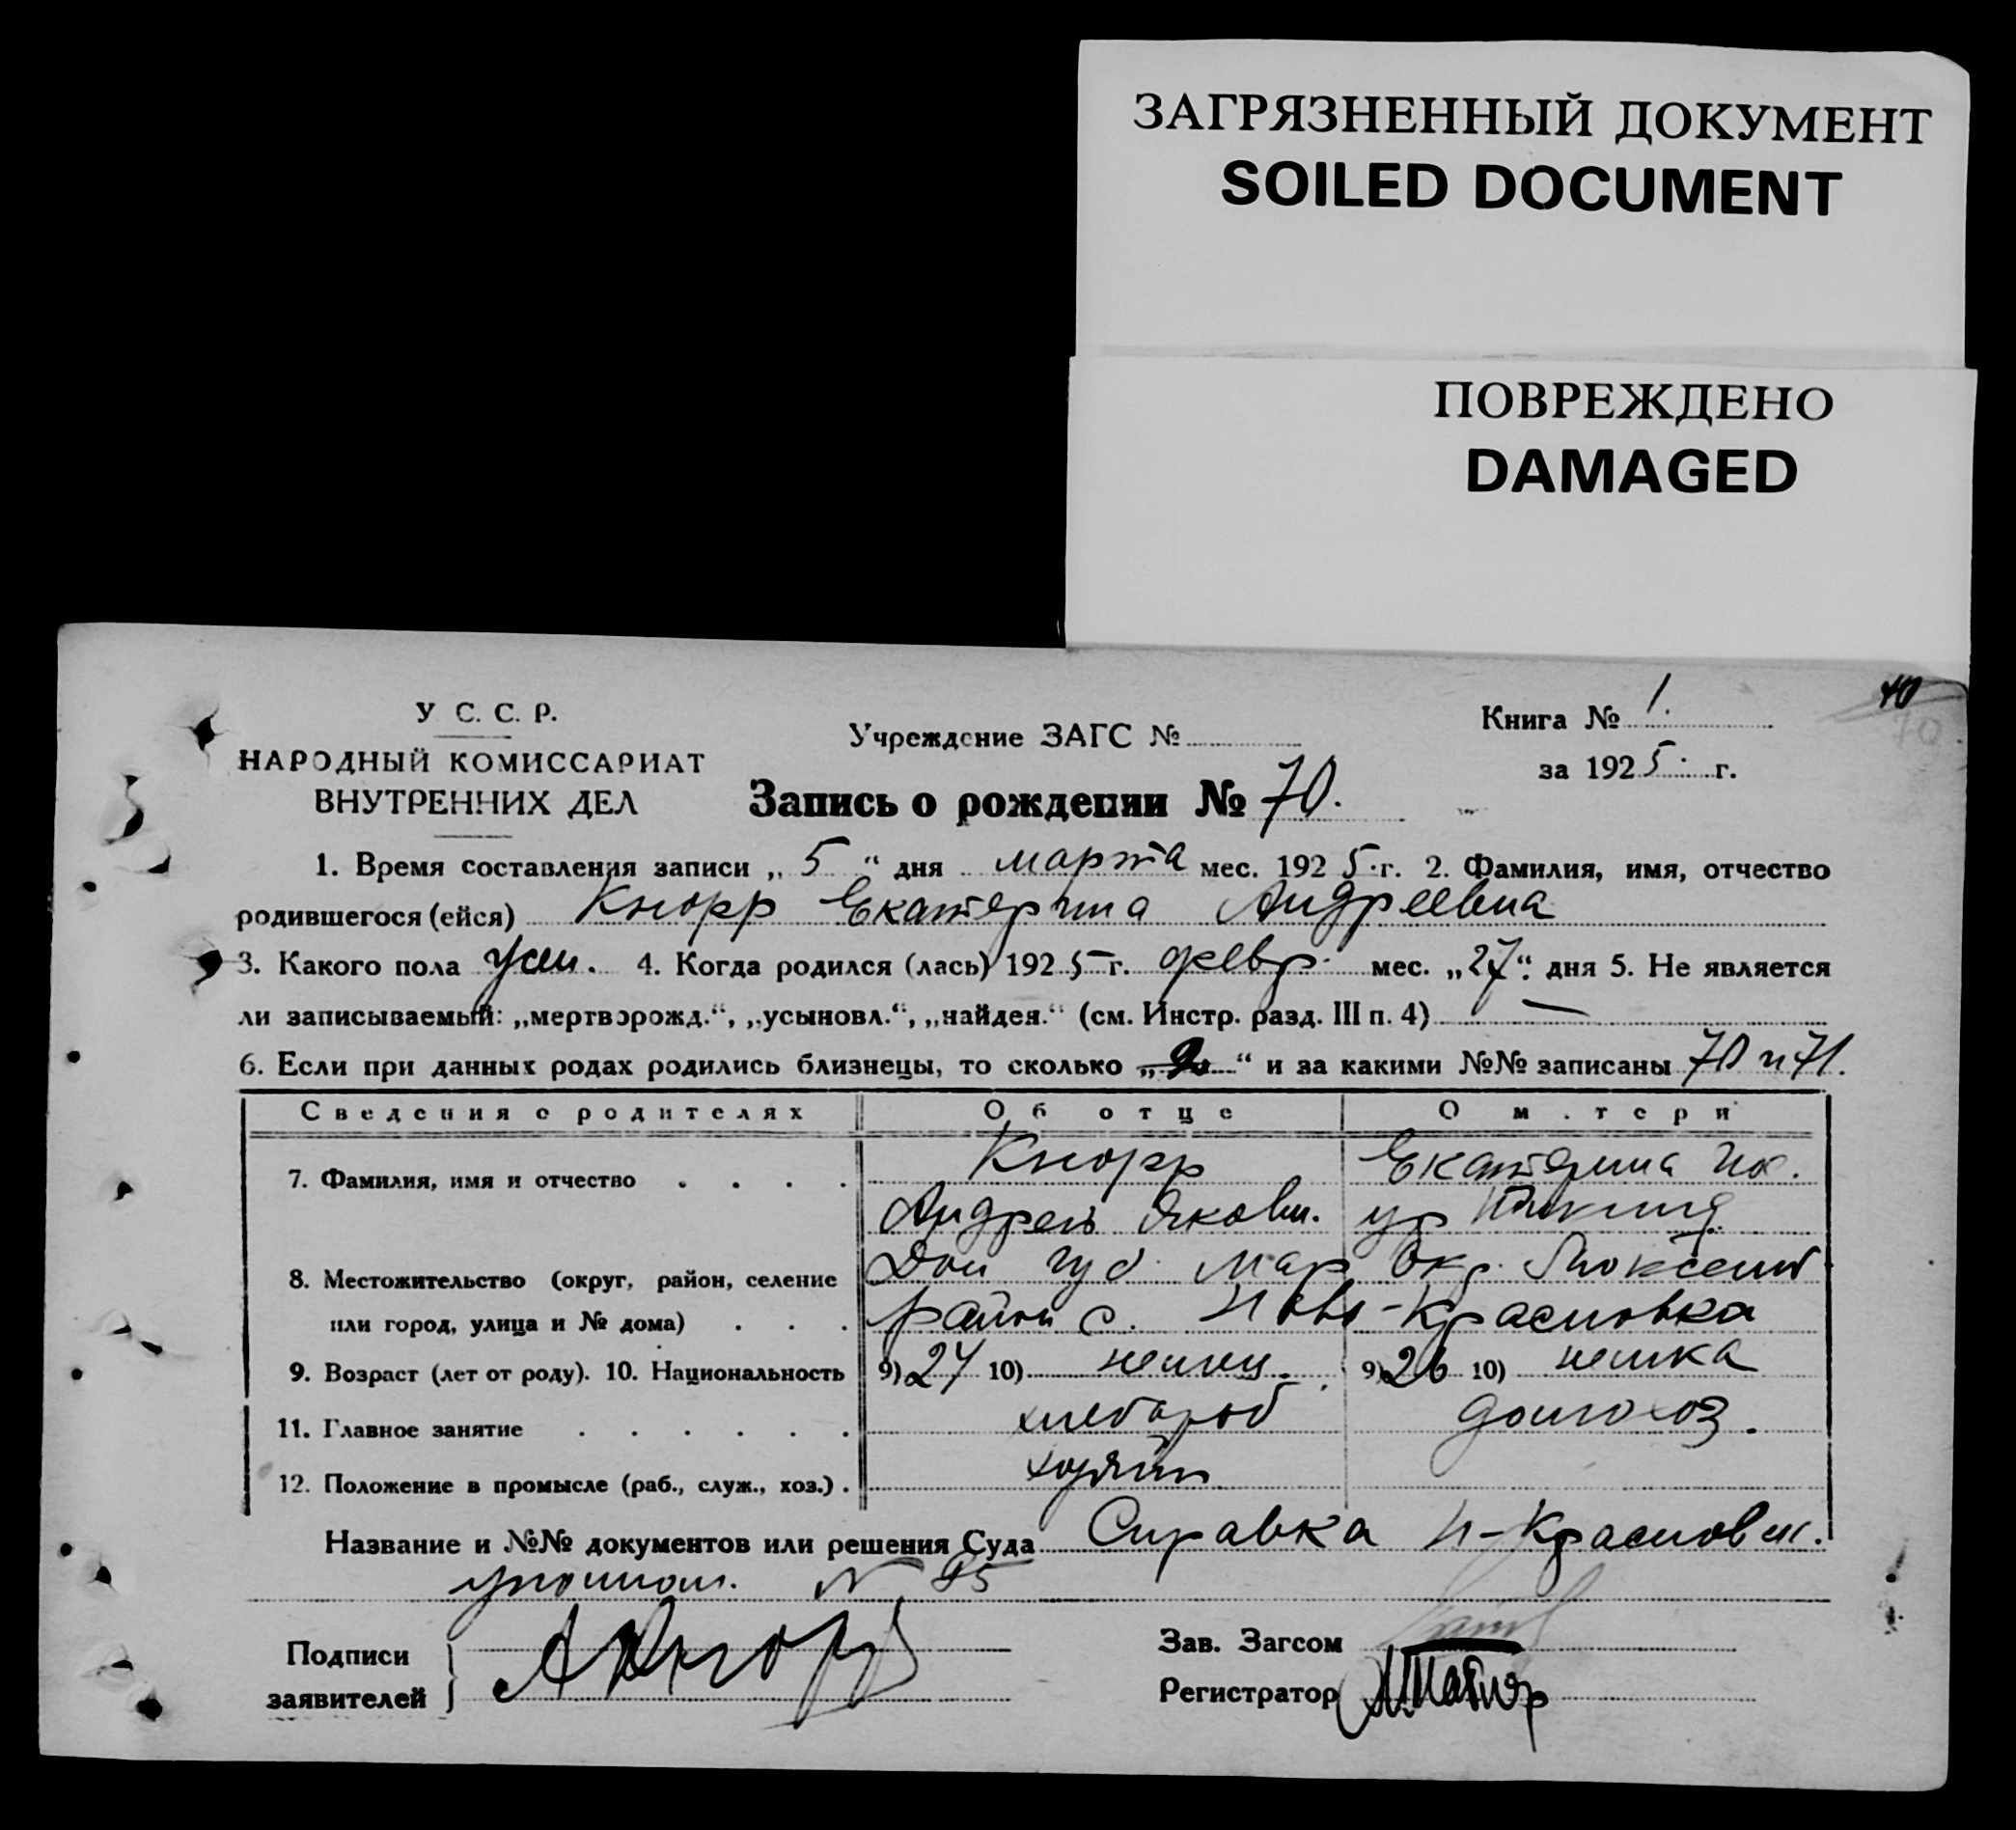 ЗАГРЯЗНЕННЫЙ ДОКУМЕНТ
SOILED DOCUMENT
ПОВРЕЖДЕНО
DAMAGED
У С. С. Р.
НАРОДНЫЙ КОМИССАРИАТ
ВНУТРЕННИХ ДЕЛ
Учреждение ЗАГС №
Книга № 1.
за 1925 г.
70
Запись о рождении № 70.
1. Время составления записи „ 5 “ дня марта мес. 1925 г. 2. Фамилия, имя, отчество
родившегося (ейся) Кнорр Екатерина Андреевна
3. Какого пола жен. 4. Когда родился (лась) 1925 г. февр. мес. „27“ дня 5. Не является
ли записываемый: „мертворожд.“, „усыновл.“, „найден.“ (см. Инстр. разд. III п. 4) —
6. Если при данных родах родились близнецы, то сколько „2“ и за какими №№ записаны 70 и 71.
Сведения о родителях Об отце О м.тери
7. Фамилия, имя и отчество . . . . Кнорр Екатерина
Андрей Яковл. ур
8. Местожительство (округ, район, селение Дон губ. Мар Окр. Люксемб
или город, улица и № дома) . . . район с. Ново-Красновка
9. Возраст (лет от роду). 10. Национальность 9) 27 10) немец. 9) 26 10) немка
11. Главное занятие . . . . . . хлебороб домохоз.
12. Положение в промысле (раб., служ., хоз.) . хозяин
Название и №№ документов или решения Суда Справка Н-Красновск.
уполном. № 95
Подписи
заявителей
АКнорр
Зав. Загсом
Регистратор